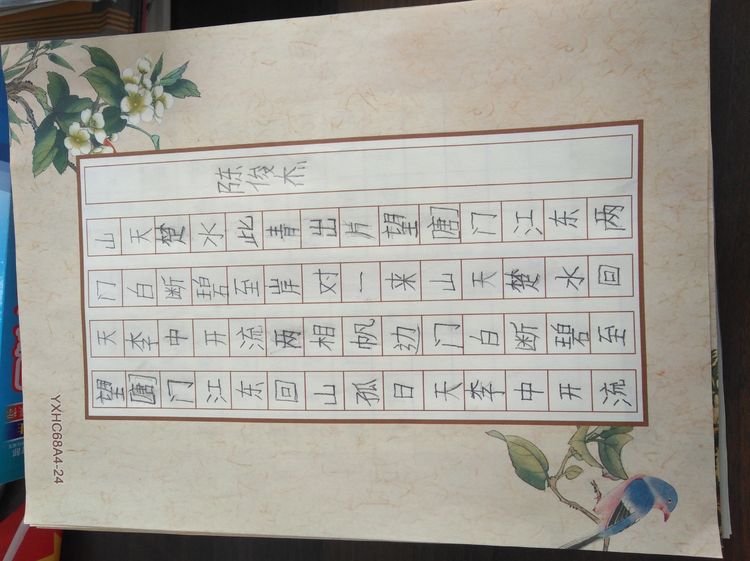 望天门山
唐李白天
门中断楚
江开碧水
东流至此
回两岸青
山相对出
孤帆一片
日边来望
天门山唐
李白天门
中断楚江
开碧水东
流至回两
陈俊杰
YXHC68A4-24